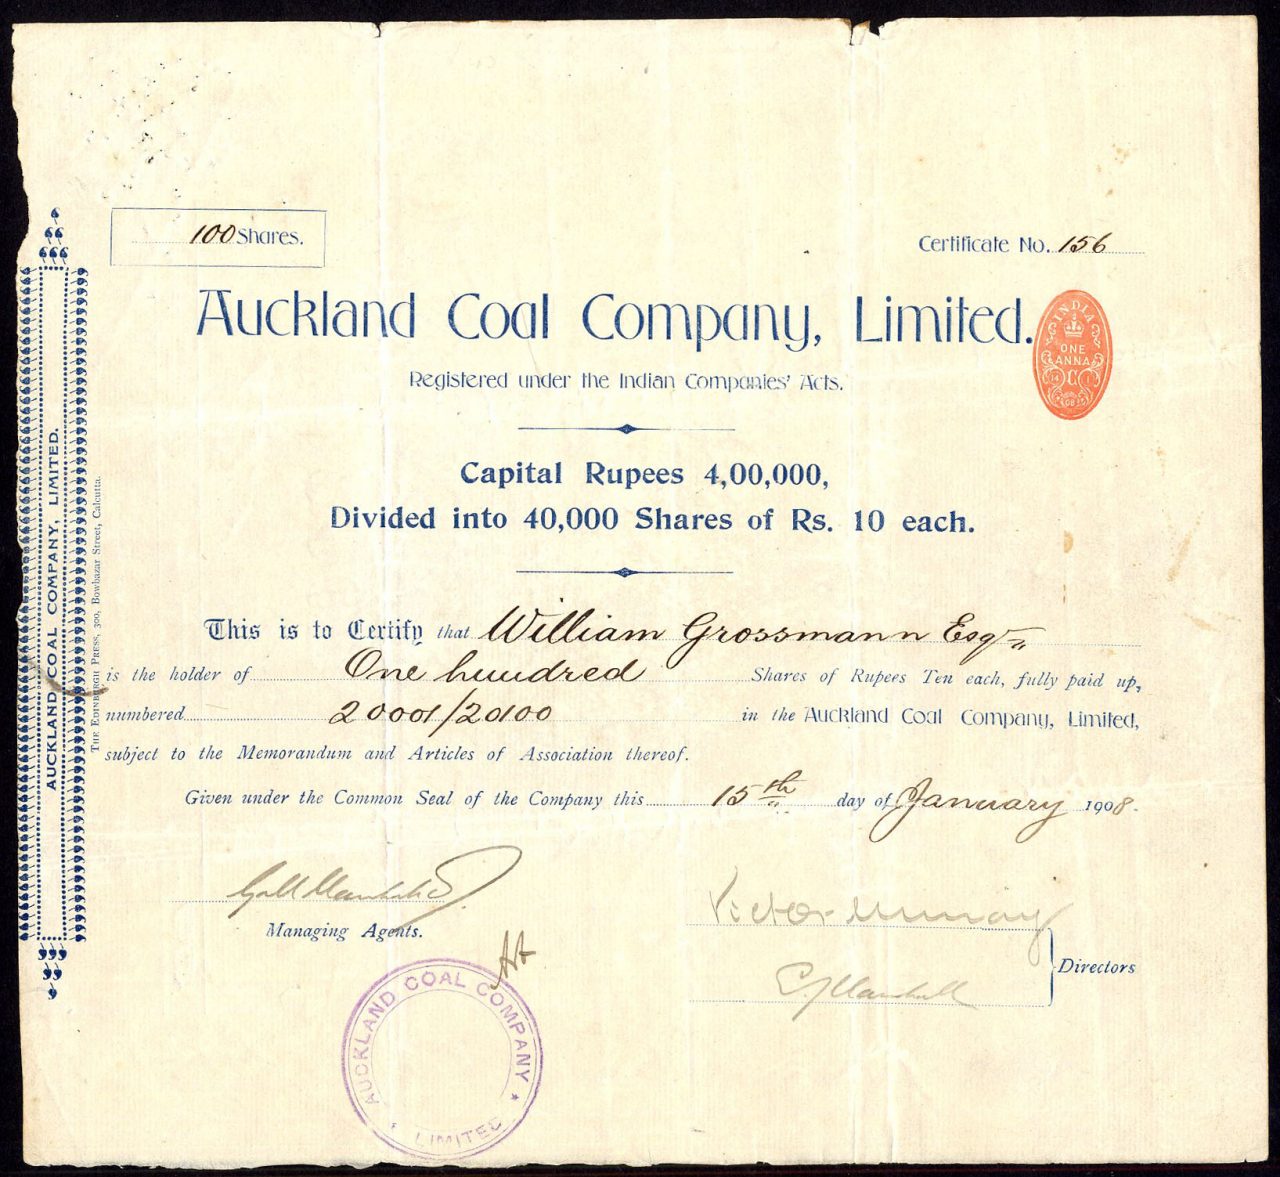 100 Shares.
Certificate No. 156
Auckland Coal Company, Limited.
Registered under the Indian Companies' Acts.
INDIA
ONE
ANNA
Capital Rupees 4,00,000,
Divided into 40,000 Shares of Rs. 10 each.
This is to Certify that William Grossmann Esqr
is the holder of One hundred Shares of Rupees Ten each, fully paid up,
numbered 20001/20100 in the Auckland Coal Company, Limited,
subject to the Memorandum and Articles of Association thereof.
Given under the Common Seal of the Company this 15th day of January 1908.
Managing Agents.
Victor Murray
Directors
AUCKLAND COAL COMPANY
LIMITED
AUCKLAND COAL COMPANY, LIMITED.
THE EDINBURGH PRESS, 300, Bowbazar Street, Calcutta.